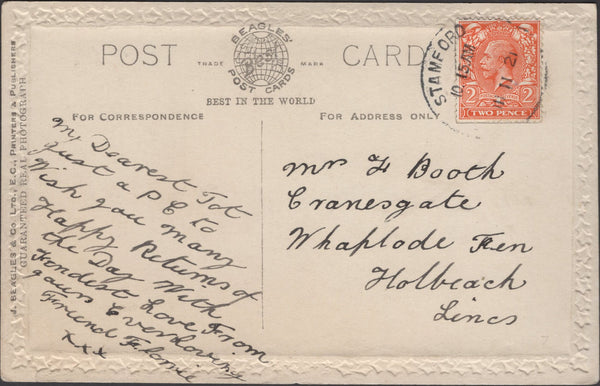 POST CARD
BEAGLES'
BEST
POST CARDS
TRADE MARK
BEST IN THE WORLD
FOR CORRESPONDENCE
FOR ADDRESS ONLY
J. BEAGLES & CO. LTD., E.C., PRINTERS & PUBLISHERS
GUARANTEED REAL PHOTOGRAPH
STAMFORD
10 15 AM
JN 21
2 2
TWO PENCE
My Dearest Tot
Just a P C to
Wish you many
Happy Returns of
the Day With
Fondest Love From
yours Everloving
Friend
xxx
Mrs F Booth
Cranesgate
Whaplode Fen
Holbeach
Lincs
7